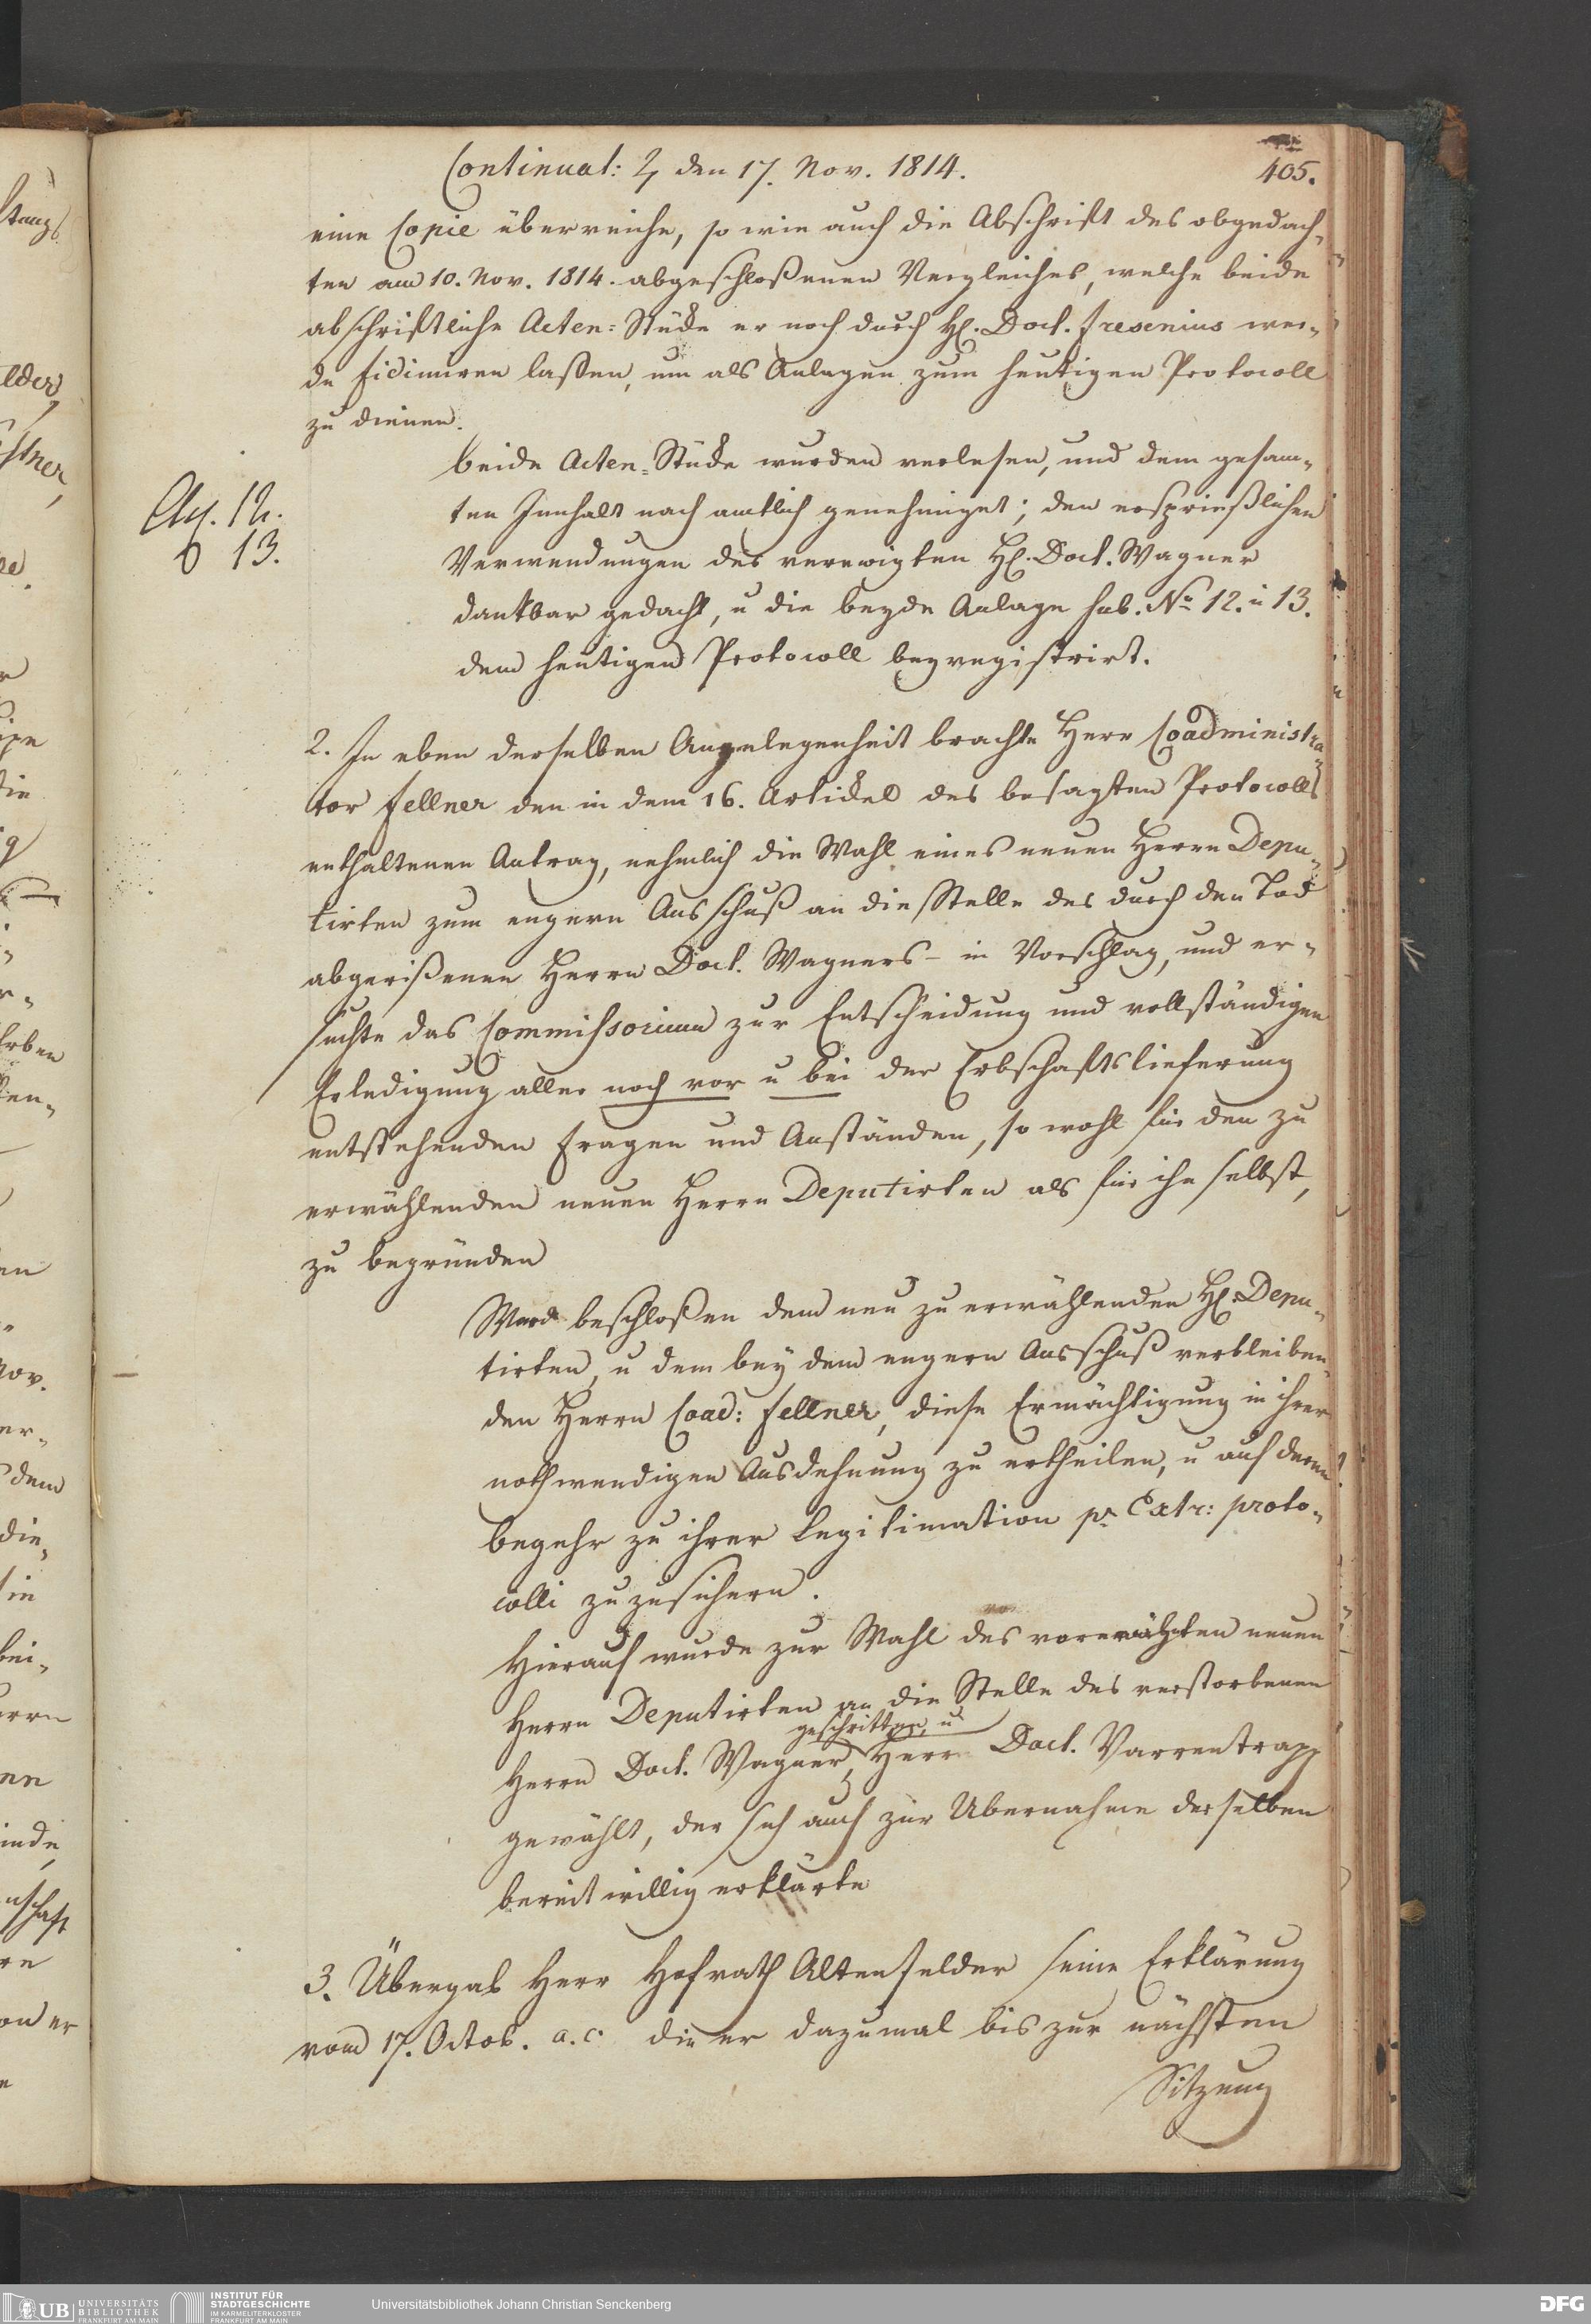 Continuat: ♃ den 17. Nov. 1814.
405.
eine Copie überreiche, so wie auch die Abschrift des obgedach-
ten am 10. Nov. 1814. abgeschloßenen Vergleiches, welche beide
abschriftliche Acten-Stücke er noch durch H. Doct. Fresenius wer-
de fidimiren laßen, um als Anlagen zum heutigen Protocoll
zu dienen.
beide Acten-Stücke wurden verlesen, und dem gesam-
ten Innhalt nach amtlich genehmiget; den ersprießlichen
Verwendungen des verewigten H. Doct. Wagner
dankbar gedacht, u die beyde Anlage sub. No 12. u 13.
dem heutigen Protocoll beyregistrirt.
12.
13.
2. In eben derselben Angelegenheit brachte Herr Coadministra-
tor Fellner den in dem 16. Artickel des besagten Protocolls
enthaltenen Antrag, nehmlich die Wahl eines neuen Herrn Depu-
tirten zum engern Ausschuß an die Stelle des durch den Tod
abgerißenen Herrn Doct. Wagners - in Vorschlag, und er-
suchte das Commissorium zur Entscheidung und vollständigen
Erledigung aller noch vor u bei der Erbschaftslieferung
entstehenden Fragen und Anständen, so wohl für den zu
erwählenden neuen Herrn Deputirten als für ihn selbst,
zu begründen
Ward beschloßen dem neu zu erwählenden H. Depu-
tirten, u dem bey dem engern Ausschuß verbleiben-
den Herrn Coad: Fellner, diese Ermächtigung in ihrer
nothwendigen Ausdehnung zu ertheilen, u auf deren
begehr zu ihrer Legitimation pr Extr: proto-
colli zuzusichern.
Hierauf wurde zur Wahl des vorerwähnten neuen
Herrn Deputirten an die Stelle des verstorbenen
geschritten, u
Herrn Doct. Wagner, Herr Doct. Varrentrapp
gewählt, der sich auch zur Übernahme derselben
bereitwillig erklärte
3. Übergab Herr Hofrath Altenfelder seine Erklärung
vom 17. Octob. a. c. die er dazumal bis zur nächsten
Sitzung
UB UNIVERSITÄTS
BIBLIOTHEK
FRANKFURT AM MAIN
INSTITUT FÜR
STADTGESCHICHTE
IM KARMELITERKLOSTER
FRANKFURT AM MAIN
Universitätsbibliothek Johann Christian Senckenberg
DFG